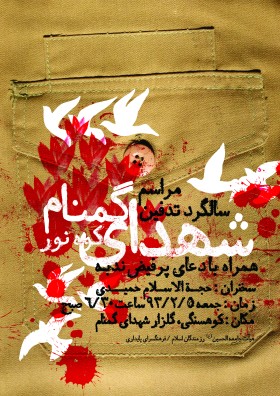 مراسم
سالگرد تدفین
شهدای گمنام
کوه نور
همراه با دعای پرفیض ندبه
سخنران : حجة الاسلام حمیدی
زمان : جمعه ۹۳/۲/۵ ساعت ۶/۳۰ صبح
مکان : کوهسنگی، گلزار شهدای گمنام
رزمندگان اسلام / فرهنگسرای پایداری